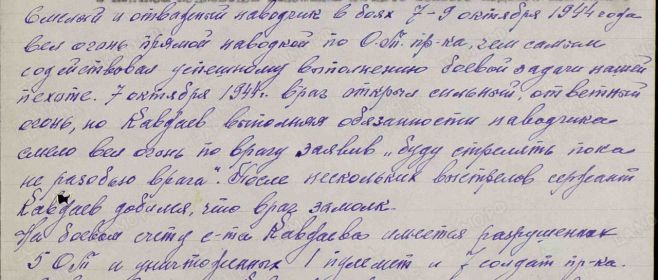 Смелый и отважный наводчик в боях 7-9 октября 1944 года
вел огонь прямой наводкой по О.Т. пр-ка, чем самым
содействовал успешному выполнению боевой задачи нашей
пехоте. 7 октября 1944г. враг открыл сильный, ответный
огонь, но Кавдаев выполняя обязанности наводчика
смело вел огонь по врагу заявив „буду стрелять пока
не разобью врага". После нескольких выстрелов сержант
Кавдаев добился, что враг замолк.
На боевом счету с-та Кавдаева имеется разрушенных
5 О.Т и уничтоженных 1 пулемет и 7 солдат пр-ка.